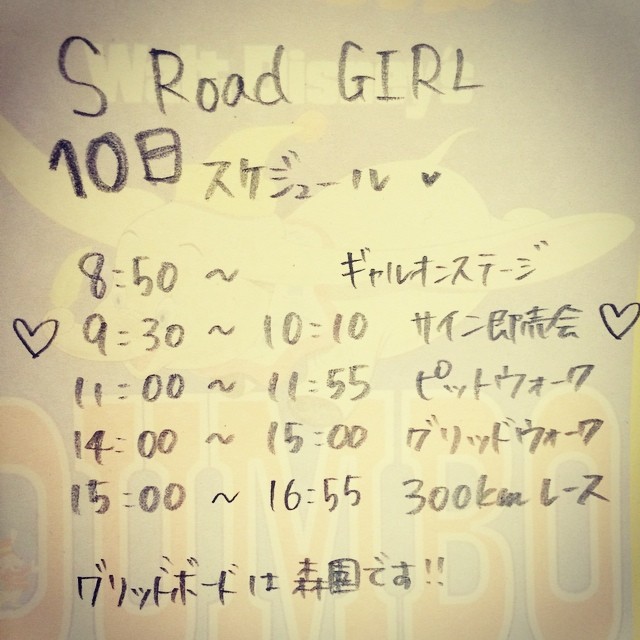 Walt Disney
S Road GIRL
10日 スケジュール ♥
8:50 ~ ギャルオンステージ
♡ 9:30 ~ 10:10 サイン即売会 ♡
11:00 ~ 11:55 ピットウォーク
14:00 ~ 15:00 グリッドウォーク
15:00 ~ 16:55 300km レース
DUMBO
グリッドボードは森園です!!